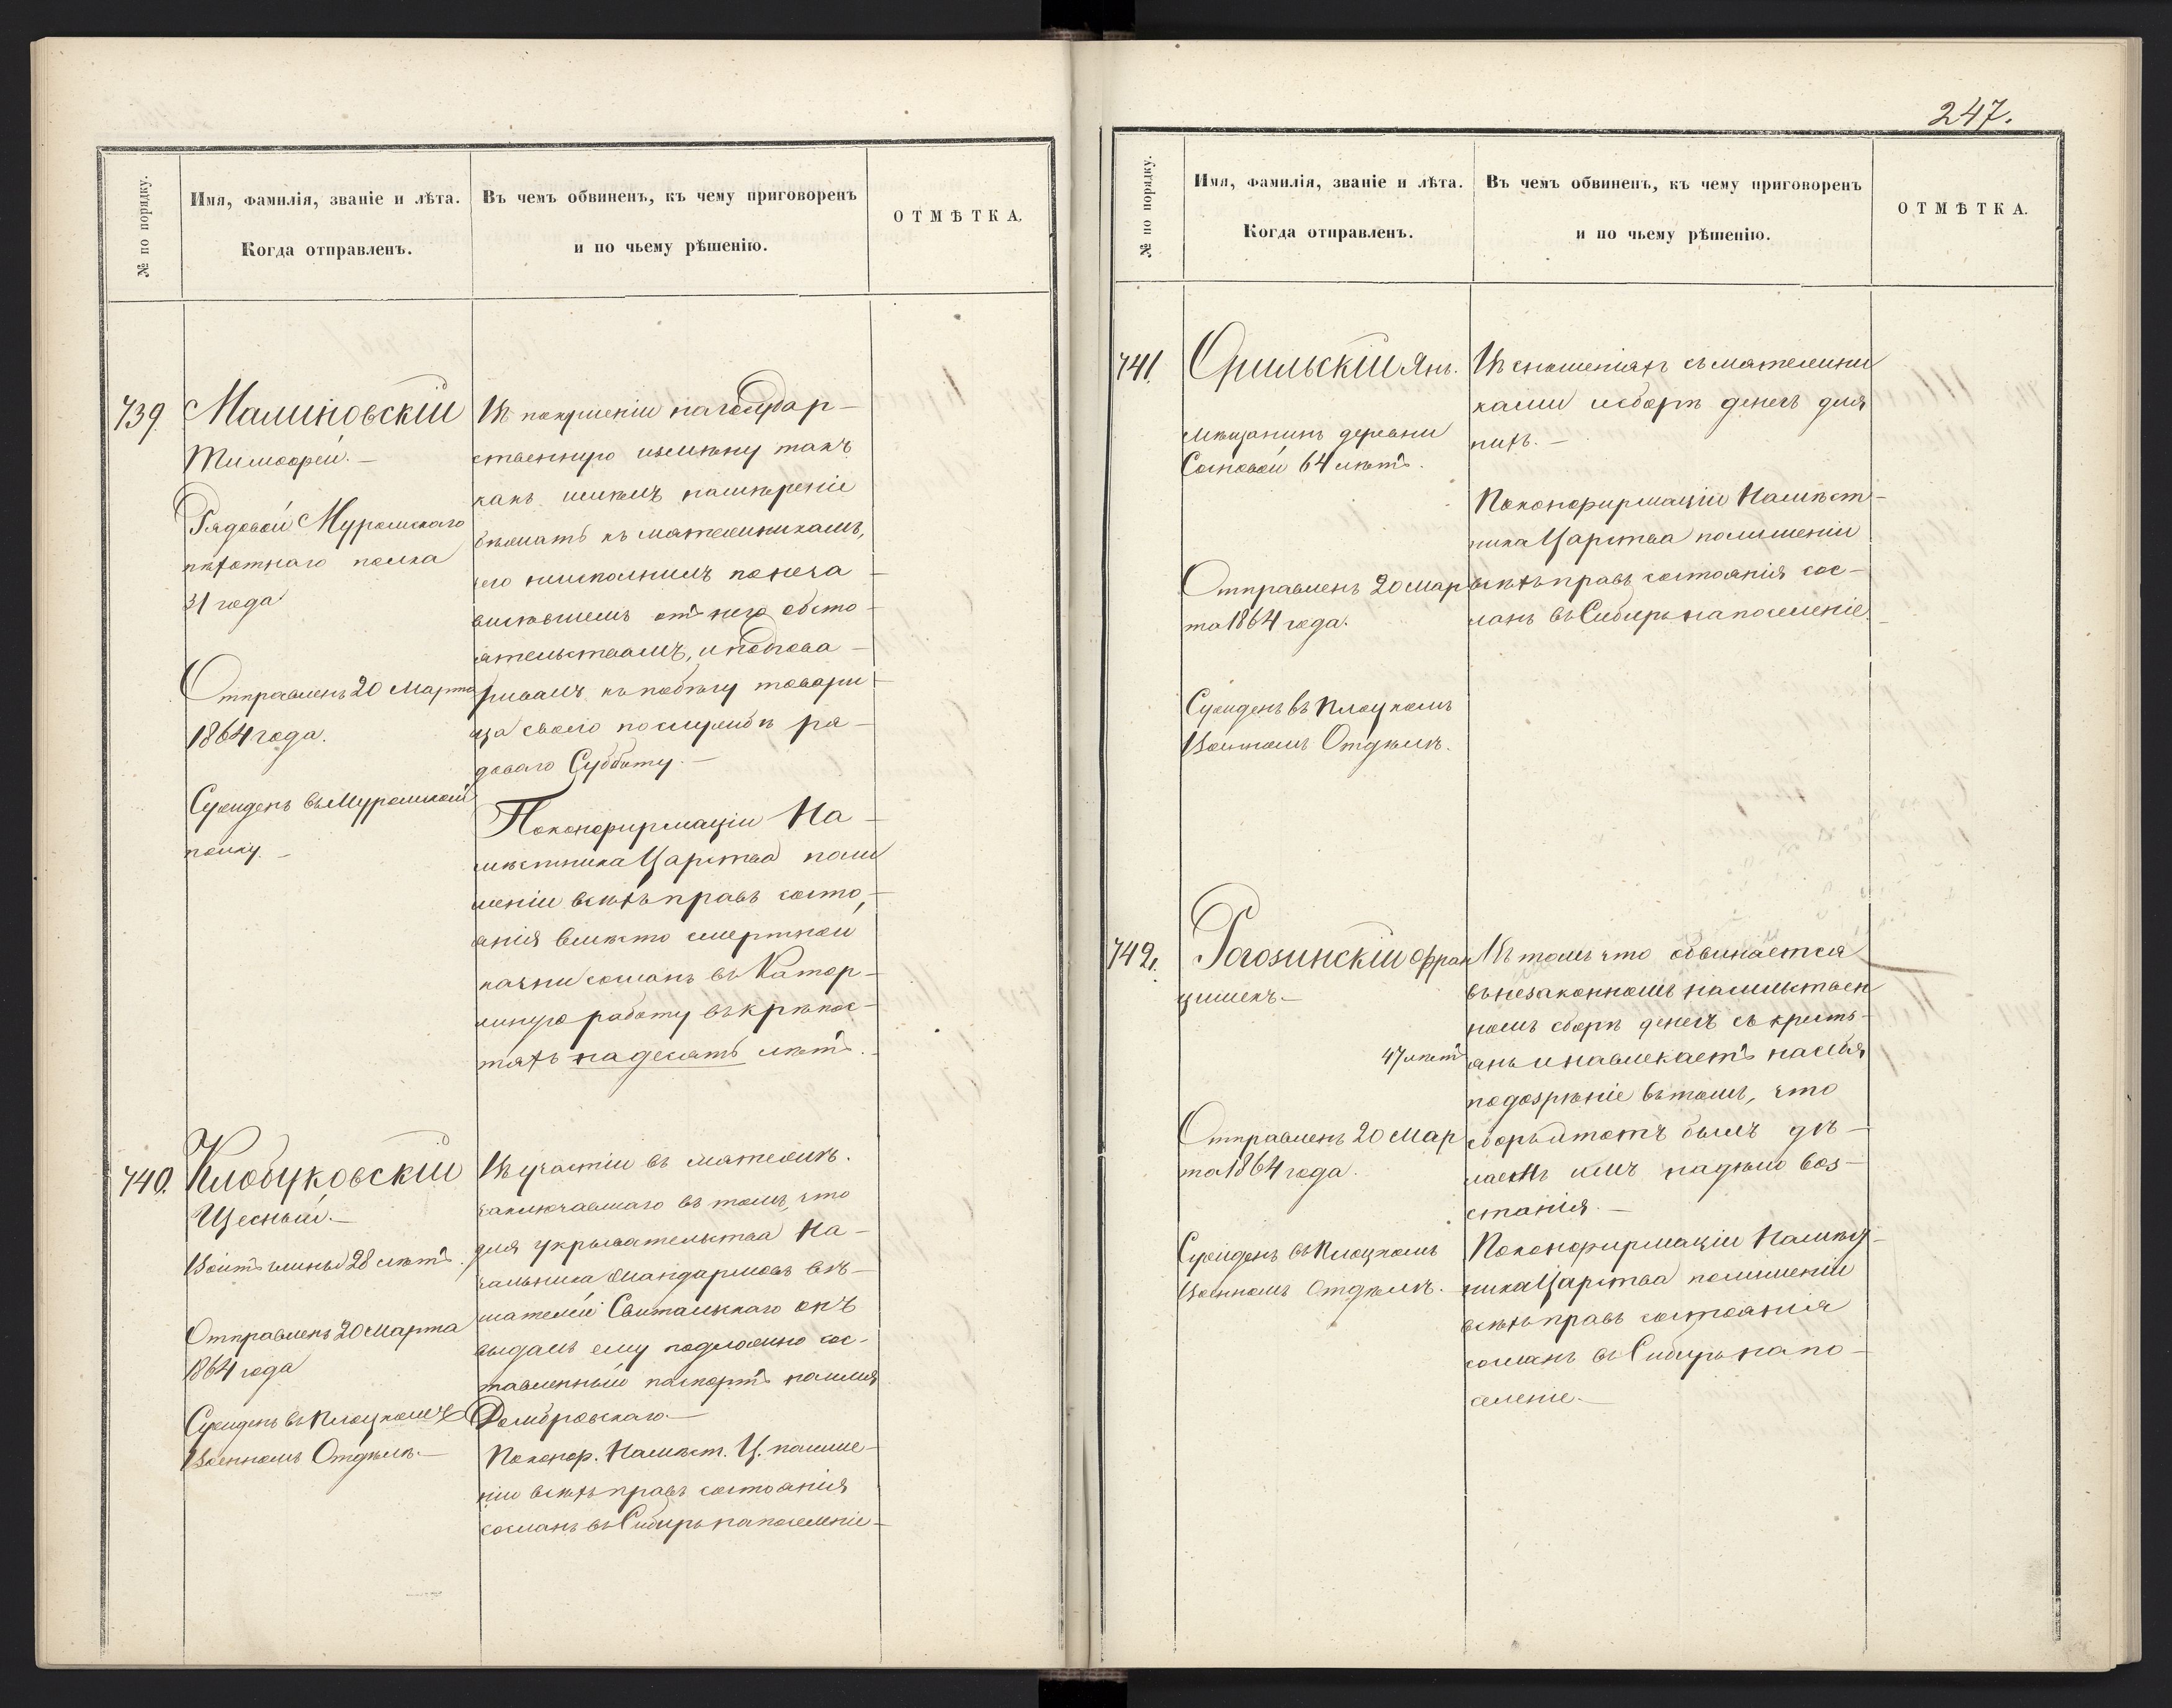 № по порядку.
Имя, фамилія, званіе и лѣта.
Когда отправленъ.
Въ чемъ обвиненъ, къ чему приговоренъ
и по чьему рѣшенію.
ОТМѢТКА.
739
Малиновскій
Тимофей.—
Рядовой Муромскаго
пѣхотнаго полка
31 года
Отправленъ 20 Марта
1864 года.
Сужденъ въ Муромском
полку —
Въ покушеніи на государ-
ственную измѣну такъ
какъ имѣлъ намѣреніе
бѣжать къ мятежникамъ,
его неисполнилъ по неза
висѣвшемъ отъ него обсто-
ятельствамъ, и подгова-
ривалъ къ побѣгу товари-
ща своего по службѣ ря-
доваго Субботу.—
По конфирмаціи На-
мѣстника Царства по ли
шеніи всѣхъ правъ состо-
янія вмѣсто смертной
казни сосланъ въ Катор-
жную работу въ крѣпос-
тяхъ на десять лѣтъ.
740.
Клобуковскій
Щесный.—
Войтъ гмины 28 лѣтъ.
Отправленъ 20 Марта
1864 года
Сужденъ въ Плоцкомъ
Военномъ Отдѣлѣ.—
Въ участіи въ мятежѣ.
заключавшаго въ томъ, что
для укрывательства На-
чальника жандармовъ вѣ-
шателей Свитальскаго онъ
выдалъ ему подложно сос-
тавленный паспортъ на имя
Домбровскаго—
По конф. Намѣст. Ц. по лише-
ніи всѣхъ правъ состоянія
сосланъ въ Сибирь на поселеніе—
247.
№ по порядку.
Имя, фамилія, званіе и лѣта.
Когда отправленъ.
Въ чемъ обвиненъ, къ чему приговоренъ
и по чьему рѣшенію.
ОТМѢТКА.
741.
Янъ.
Мѣщанинъ деревни
Сосновой 64 лѣтъ.
Отправленъ 20 Мар
та 1864 года.
Сужденъ въ Плоцкомъ
Военномъ Отдѣлѣ.
Въ сношеніяхъ съ мятежни
ками и сборѣ денегъ для
нихъ.—
По конфирмаціи Намѣст-
ника Царства по лишеніи
всѣхъ правъ состоянія сос-
ланъ въ Сибирь на поселеніе.
742.
Рогозинскій Фран
цишекъ—
47 лѣтъ
Отправленъ 20 Мар
та 1864 года.
Сужденъ въ Плоцкомъ
Военномъ Отдѣлѣ.
Въ томъ что обвиняется
въ незаконномъ насильствен
номъ сборѣ денегъ съ кресть-
янъ и навлекаетъ на себя
подозрѣніе въ томъ, что
сборъ этотъ былъ дѣ-
лаемъ имъ на дѣло воз-
станія.—
По конфирмаціи Намѣст-
ника Царства по лишеніи
всѣхъ правъ состоянія
сосланъ въ Сибирь на по-
селеніе.—